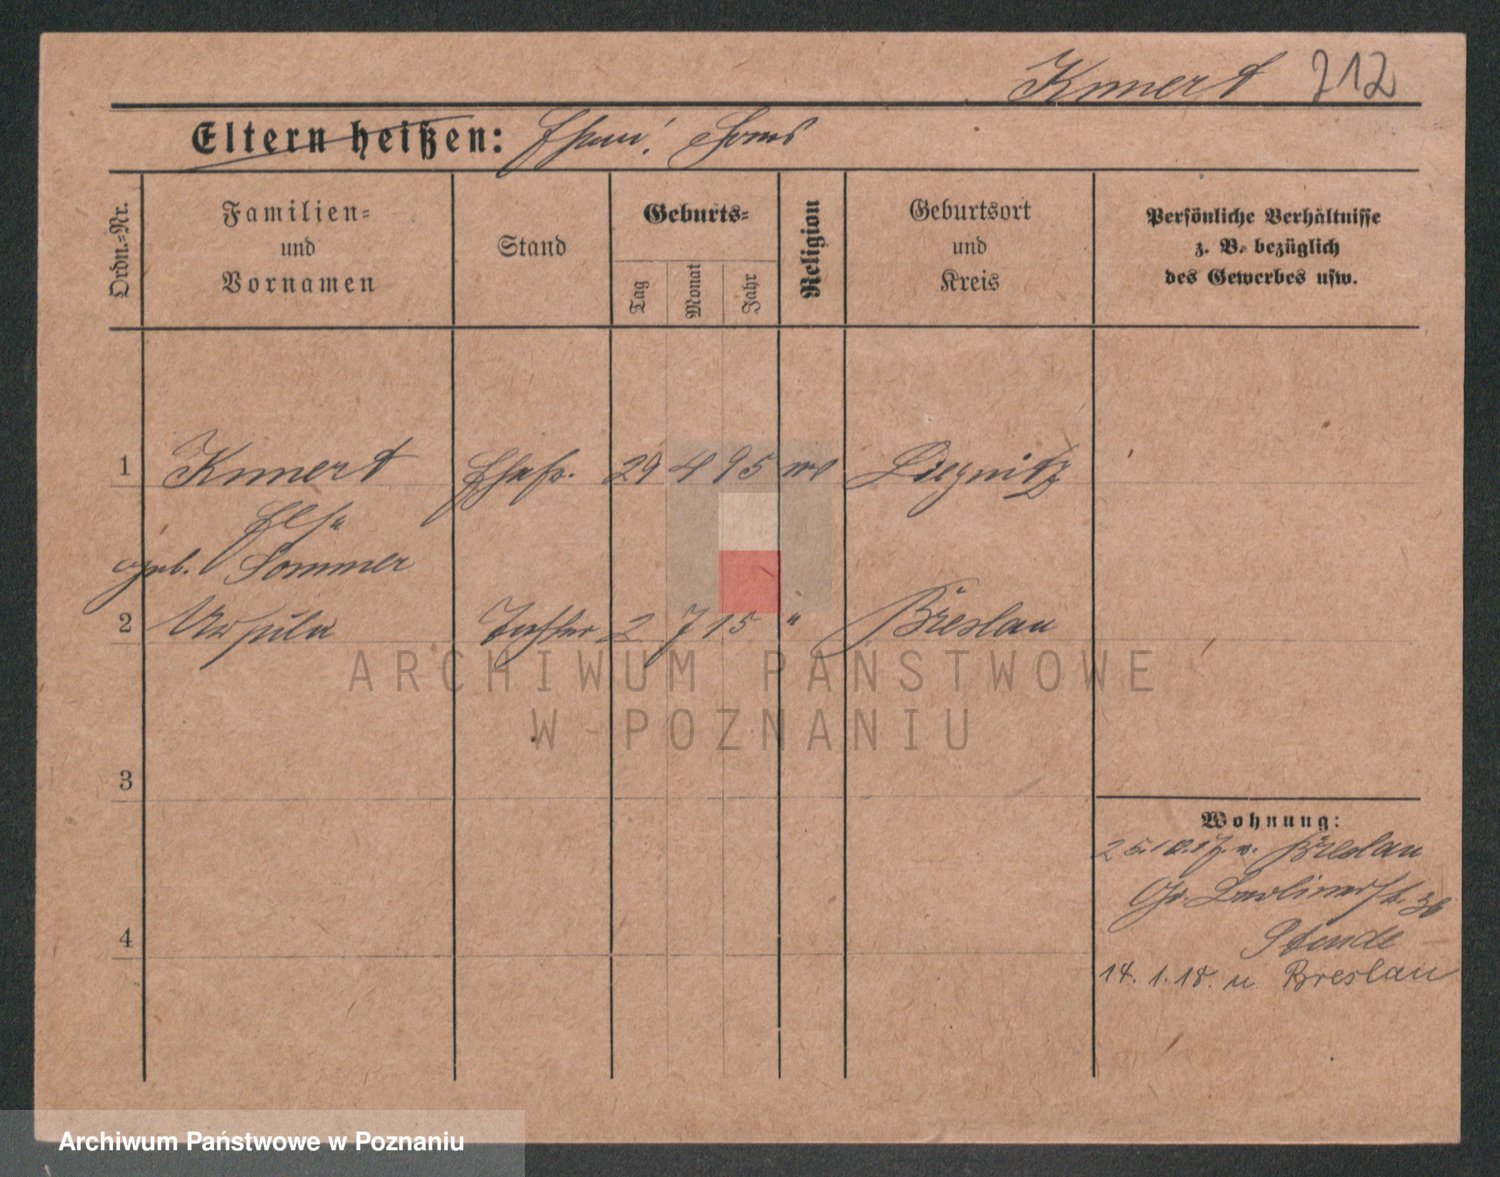 Knnert 212
Eltern heißen:
Ordn.-Nr.
Familien-
und
Vornamen
Stand
Geburts-
Tag
Monat
Jahr
Religion
Geburtsort
und
Kreis
Persönliche Verhältnisse
z. B. bezüglich
des Gewerbes usw.
1 Knnert Ehefr. 29 4 95 Liegnitz
Else
geb. Sommer
2 Tochter 2 7 15 " Breslau
3
4
Wohnung:
25.10.17. v. Breslau
Gr. 36
14. 1. 18. n Breslau
ARCHIWUM PAŃSTWOWE
W POZNANIU
Archiwum Państwowe w Poznaniu